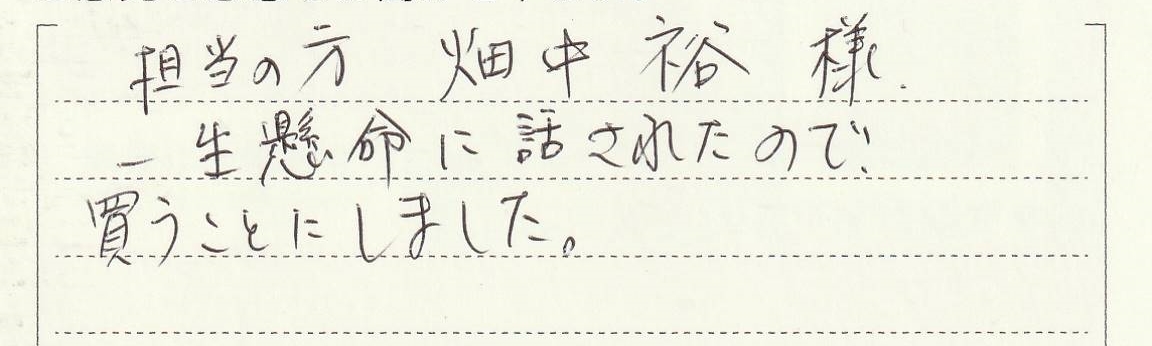 担当の方 畑中 裕 様
一生懸命に話されたので
買うことにしました。